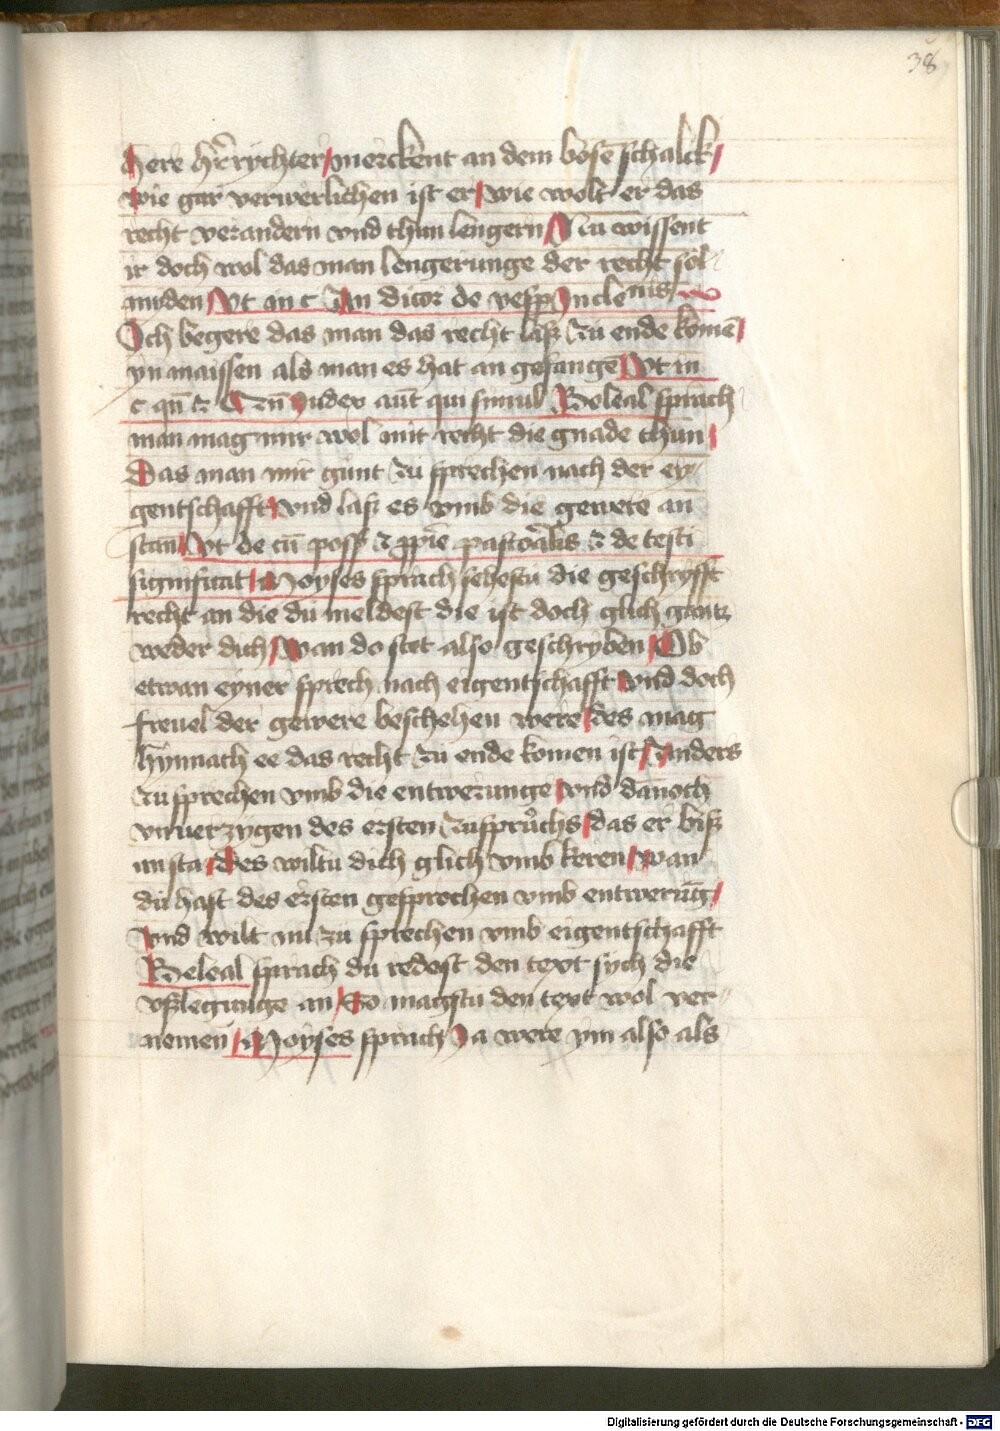 38
Here hr̄ rychter merckent an dem bösē schalck
wie gar verwerlichen ist er wie wolt er das
recht verandern vnd thun lengern Nu wissent
ir doch wol das man lengerunge der recht söl
miden Vt in c Jn dictor de vesp Jncle nis
Jch begere das man das recht laß zu ende komē
yn maissen als man es hat an gefangē Vt in
c qn̄ Judex aūt qui simul Beleal sprach
man mag mir wol mit recht die gnade thun
Das man mir günt zu sprechen nach der ey
gentschafft vnd laß es vmb die gewere an
stan Vt de cū poss pastoralis de testi
significat Moyses sprach sehestu die geschryfft
recht an die du meldest die ist doch glich gantz
weder dich Wan do stet also geschryben Ob
etwan eyner sprech nach eigentschafft vnd doch
freuel der gewere beschehen were des mag
hynnach ee das recht zu ende komen ist Anders
zu sprechen vmb die entwerunge vnd dānoch
vnuerzygen des ersten zuspruchs das er biß
in sta Des wiltu dich glich vmb keren wan
du hast des ersten gesprochen vmb entwerūg
vnd wilt nu zu sprechen vmb eigentschafft
Beleal sprach du redest den text sych die
vßlegunge an So magstu den text wol ver
nemen Moyses sprach Ja were ym also als
Digitalisierung gefördert durch die Deutsche Forschungsgemeinschaft - DFG